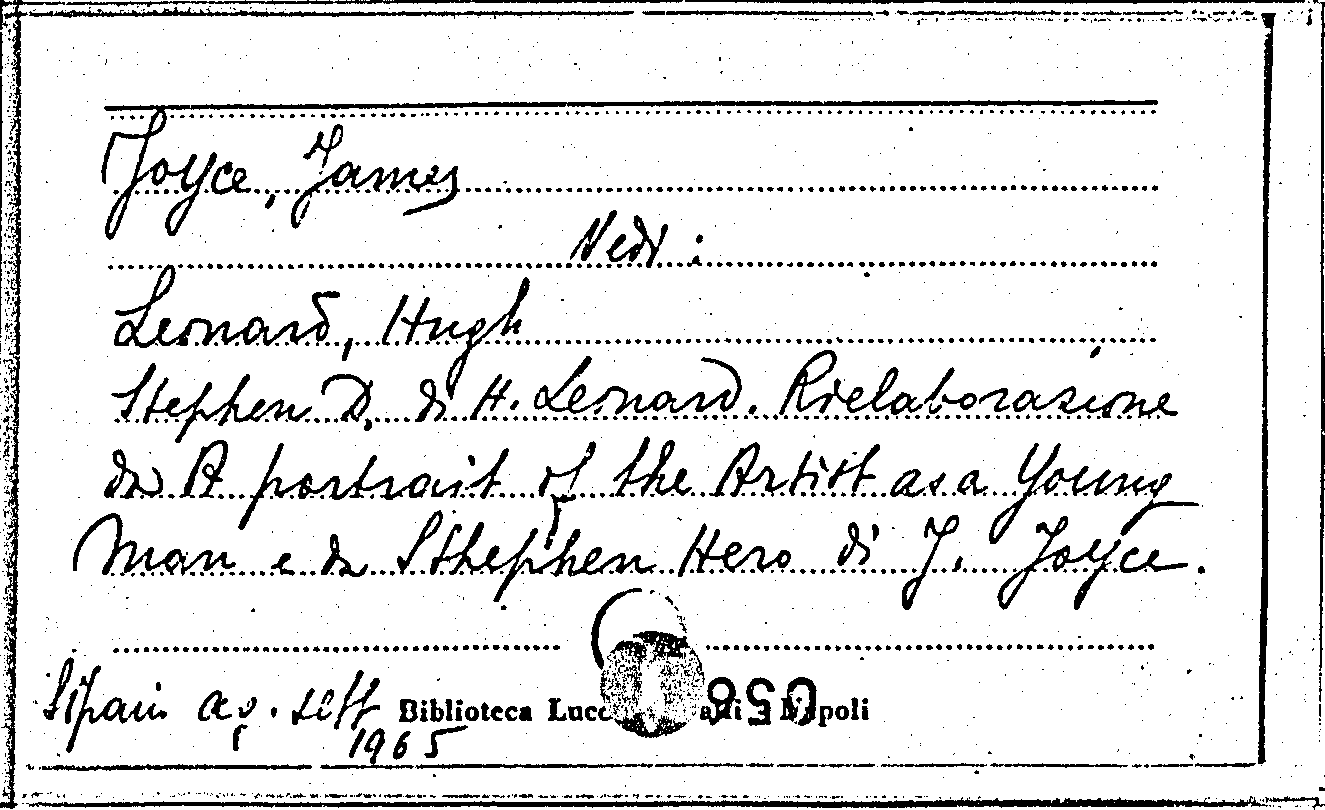 Joyce, James
Vedi :
Leonard, Hugh
Stephen D. di H. Leonard. Rielaborazione
da A portrait of the Artist as a Young
Man e da Sthephen Hero di J. Joyce.
Sipario ag. sett
1965
Biblioteca Lucc Napoli